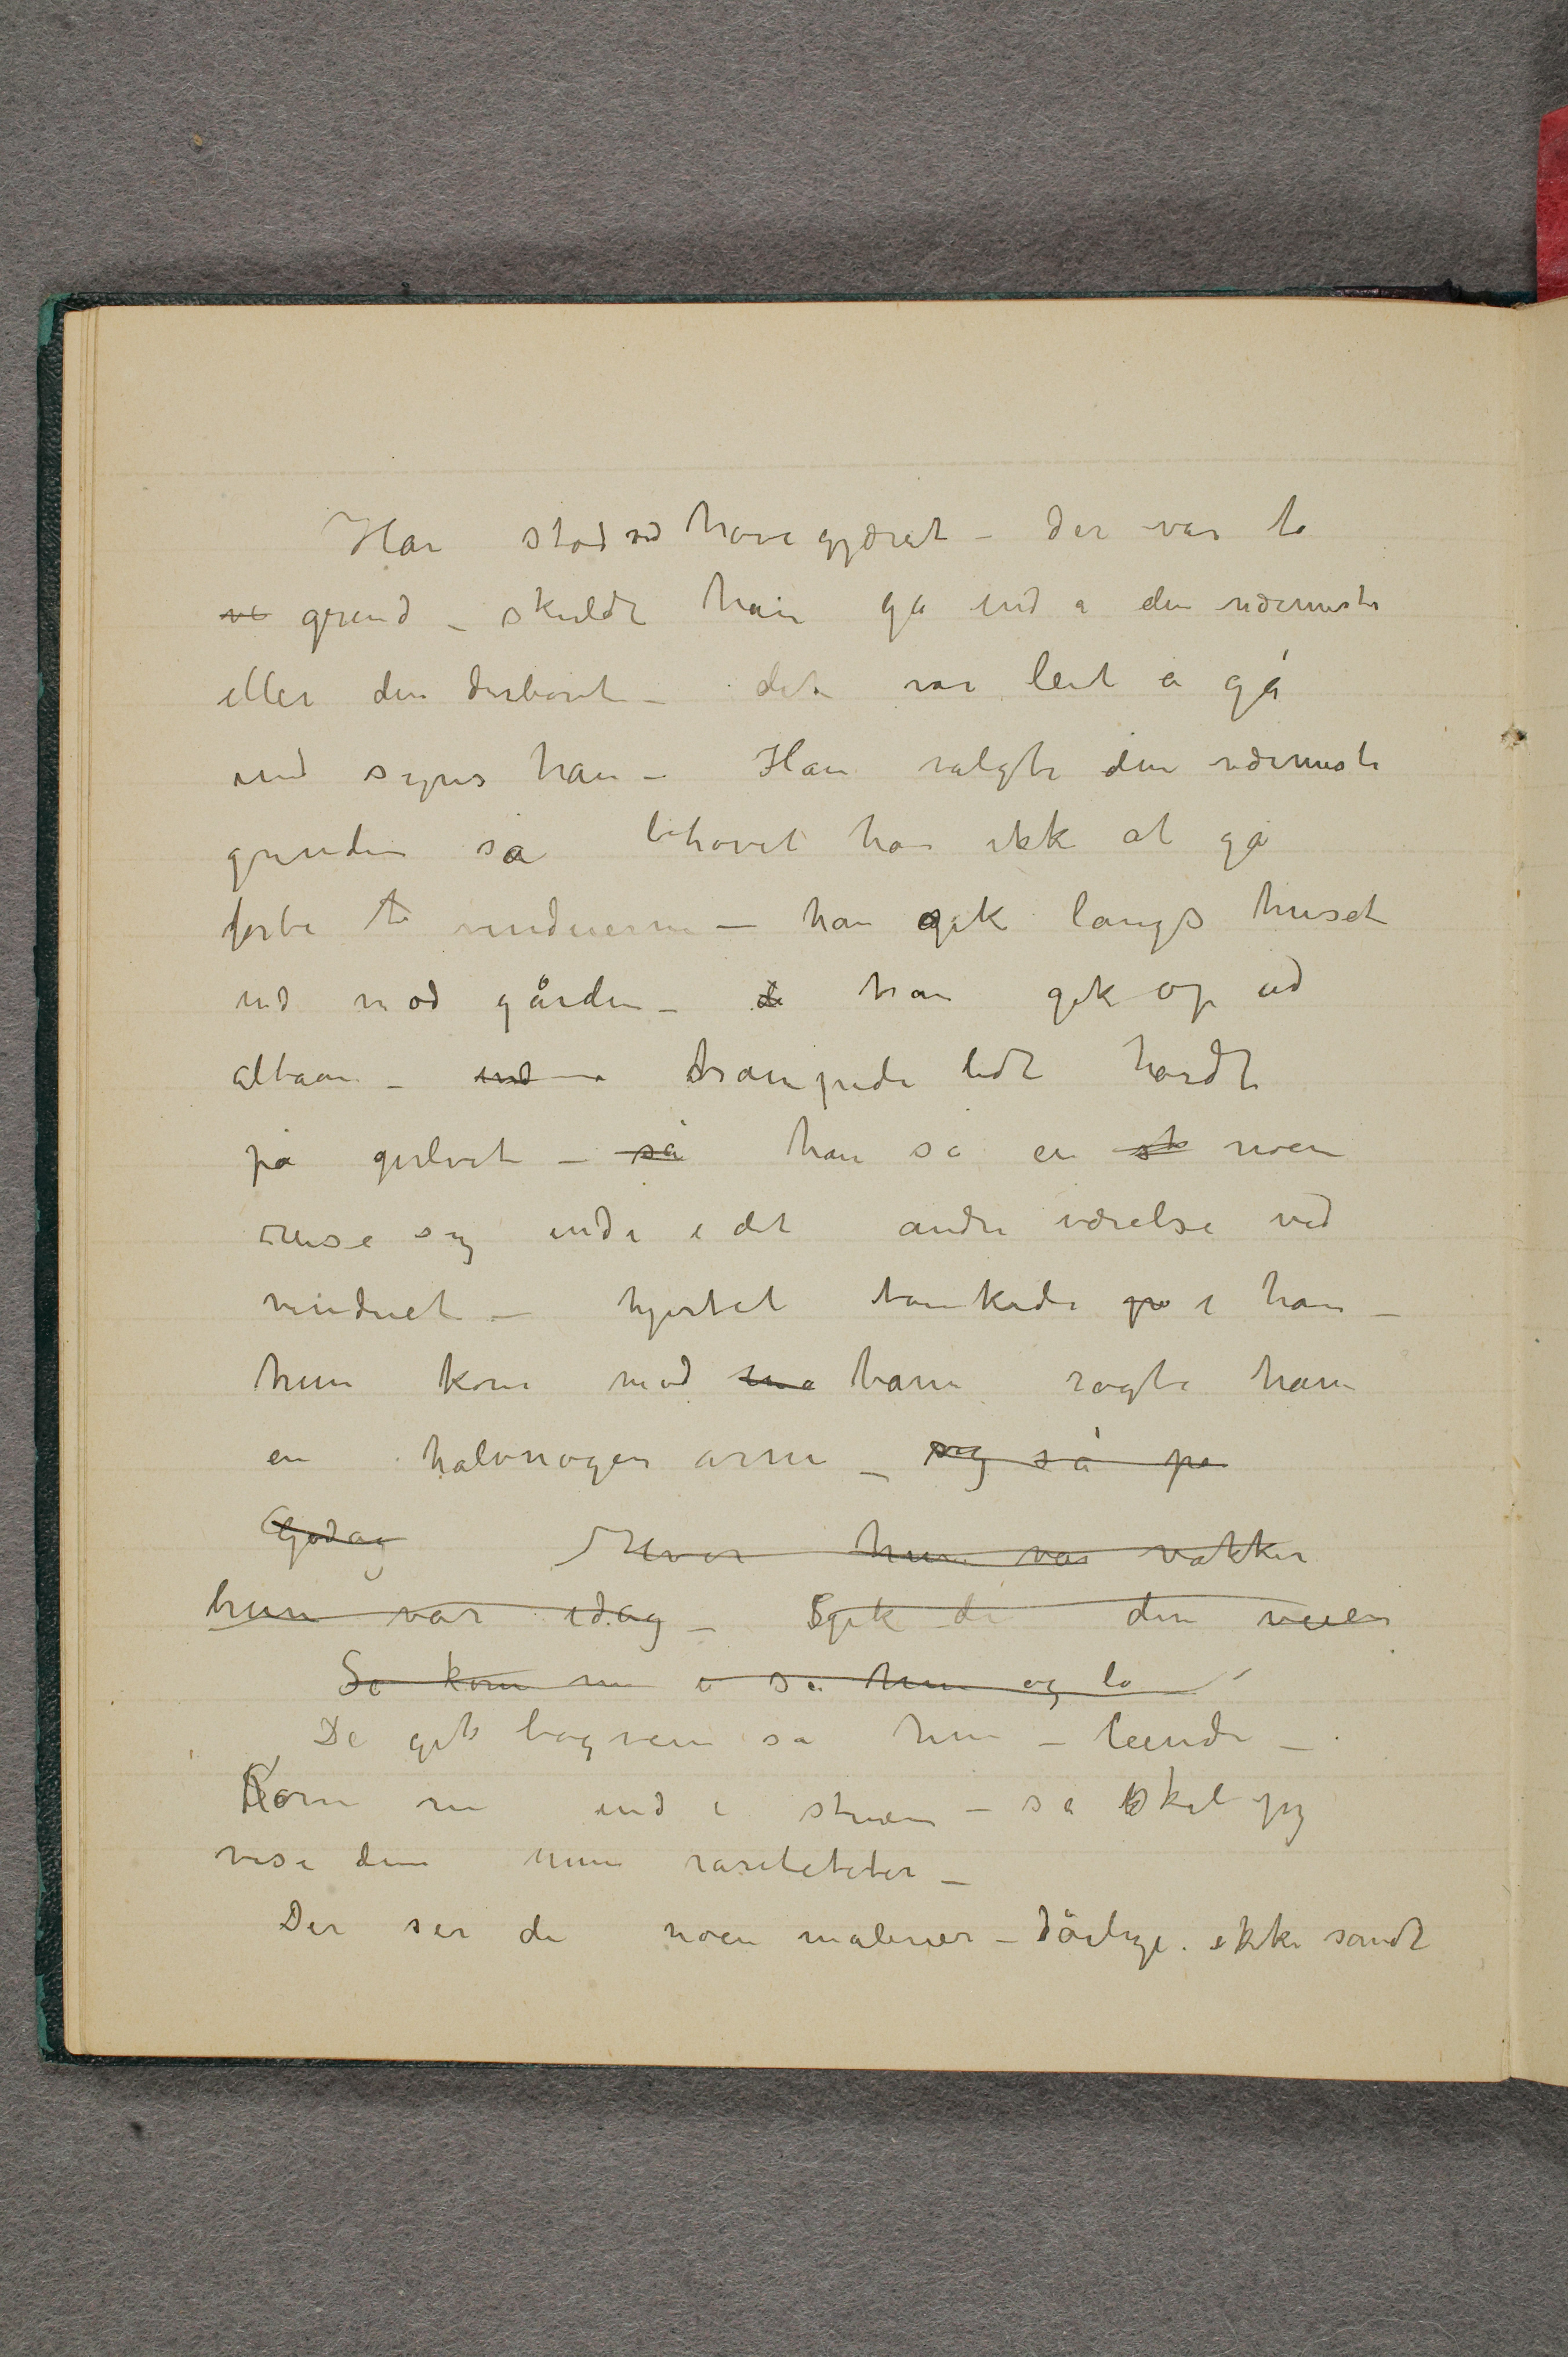 Han stod ved havegjæret – der var to
ve grind – skulde han gå ind a den nærmeste
eller den derborte – det var leit a gå
ind synes han – Han valgte den nærmeste
grinden så behøvet han ikk at gå
forbi to vinduerne – han gik langs huset
ind mod gården – d han gik op ad
altaan – ind – trampede lidt hardt
på gulvet – så han så en st noen
reise sig inde i det andre værelse ved
vinduet – hjertet bankede på i ham –
hun kom mod ham ragte ham
en halvnøgen arm – og så på
Godag Hvor hun var vakker
hun var idag – Gik de den veien
Så kom nu i sa hun og lo
De gik bagveien sa hun – leende –
Kom nu ind i stuen – så skal jeg
vise dem mine rariteteter –
Der ser de noen malerier – dårlige. ikke sandt